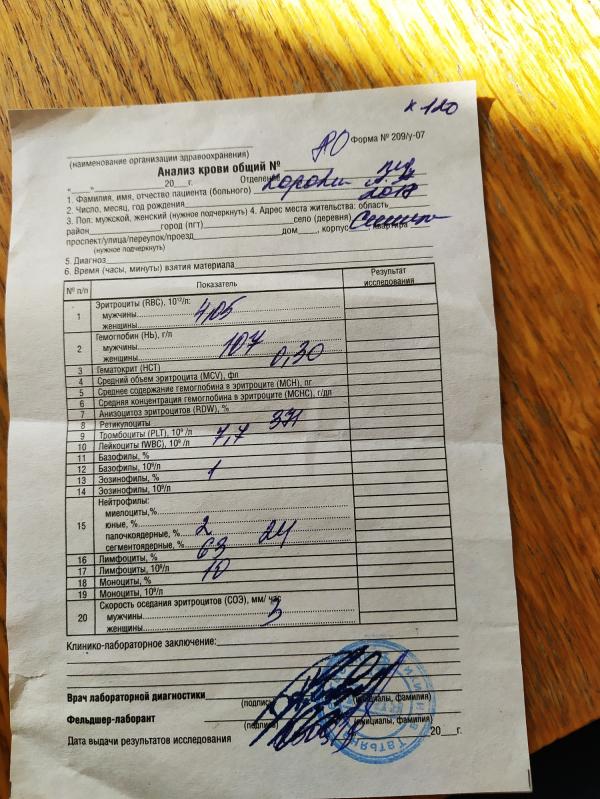 к 120
Форма № 209/у-07
(наименование организации здравоохранения)
Анализ крови общий №
«___»____________20___г. Отделение
1. Фамилия, имя, отчество пациента (больного)
2. Число, месяц, год рождения 2017
3. Пол: мужской, женский (нужное подчеркнуть) 4. Адрес места жительства: область
район город (пгт) село (деревня)
проспект/улица/переулок/проезд дом____, корпус квартира
(нужное подчеркнуть)
5. Диагноз
6. Время (часы, минуты) взятия материала
№ п/п Показатель Результат исследования
1 Эритроциты (RBC), 10¹²/л:
мужчины 4,05
женщины
2 Гемоглобин (Hb), г/л
мужчины 107
женщины
3 Гематокрит (HCT) 0,30
4 Средний объем эритроцита (MCV), фл
5 Среднее содержание гемоглобина в эритроците (MCH), пг
6 Средняя концентрация гемоглобина в эритроците (MCHC), г/дл
7 Анизоцитоз эритроцитов (RDW), %
8 Ретикулоциты 371
9 Тромбоциты (PLT), 10⁹ /л 7,7
10 Лейкоциты fWBC), 10⁹ /л
11 Базофилы, %
12 Базофилы, 10⁹/л
13 Эозинофилы, % 1
14 Эозинофилы, 10⁹/л
15 Нейтрофилы:
миелоциты,%
юные, %
палочкоядерные, % 2 24
сегментоядерные, % 63
16 Лимфоциты, %
17 Лимфоциты, 10⁹/л 10
18 Моноциты, %
19 Моноциты, 10⁹/л
20 Скорость оседания эритроцитов (СОЭ), мм/ час
мужчины 3
женщины
Клинико-лабораторное заключение:
Врач лабораторной диагностики
(подпись) (инициалы, фамилия)
Фельдшер-лаборант
(подпись) (инициалы, фамилия)
Дата выдачи результатов исследования 20___г.